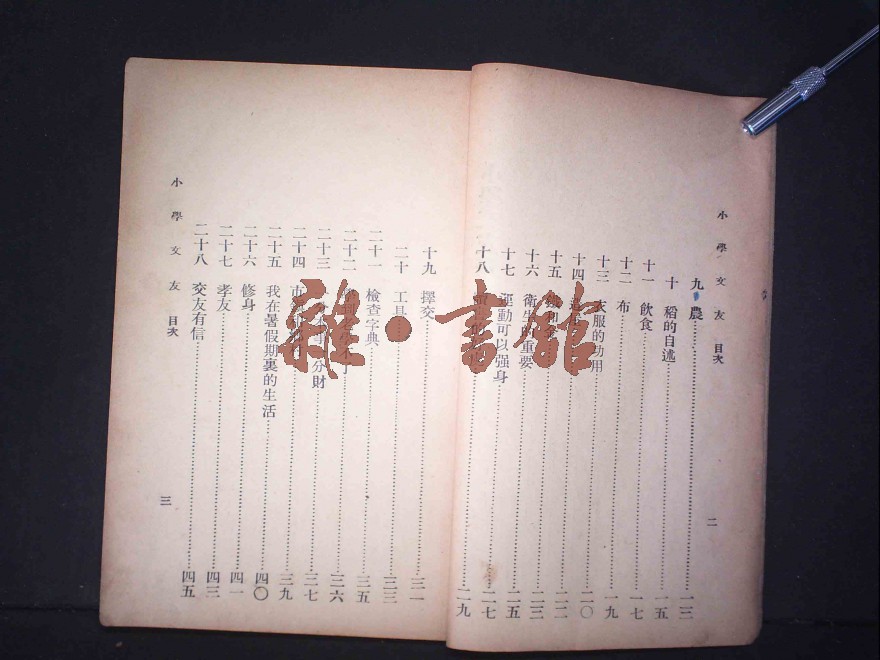 小學文友 目次
九 農 一三
十 稻的自述 一五
十一 飲食 一七
十二 布 一九
十三 衣服的功用 二〇
十四
十五 二二
十六 衛生的重要 二三
十七 運動可以强身 二五
十八 二七
二九
二
十九 擇交 三一
二十 工具 三三
二十一 檢查字典 三五
二十二 三六
二十三 分財 三七
二十四 三九
二十五 我在暑假期裏的生活 四〇
二十六 修身 四一
二十七 孝友 四三
二十八 交友有信 四五
小學文友 目次
三
雜·書館